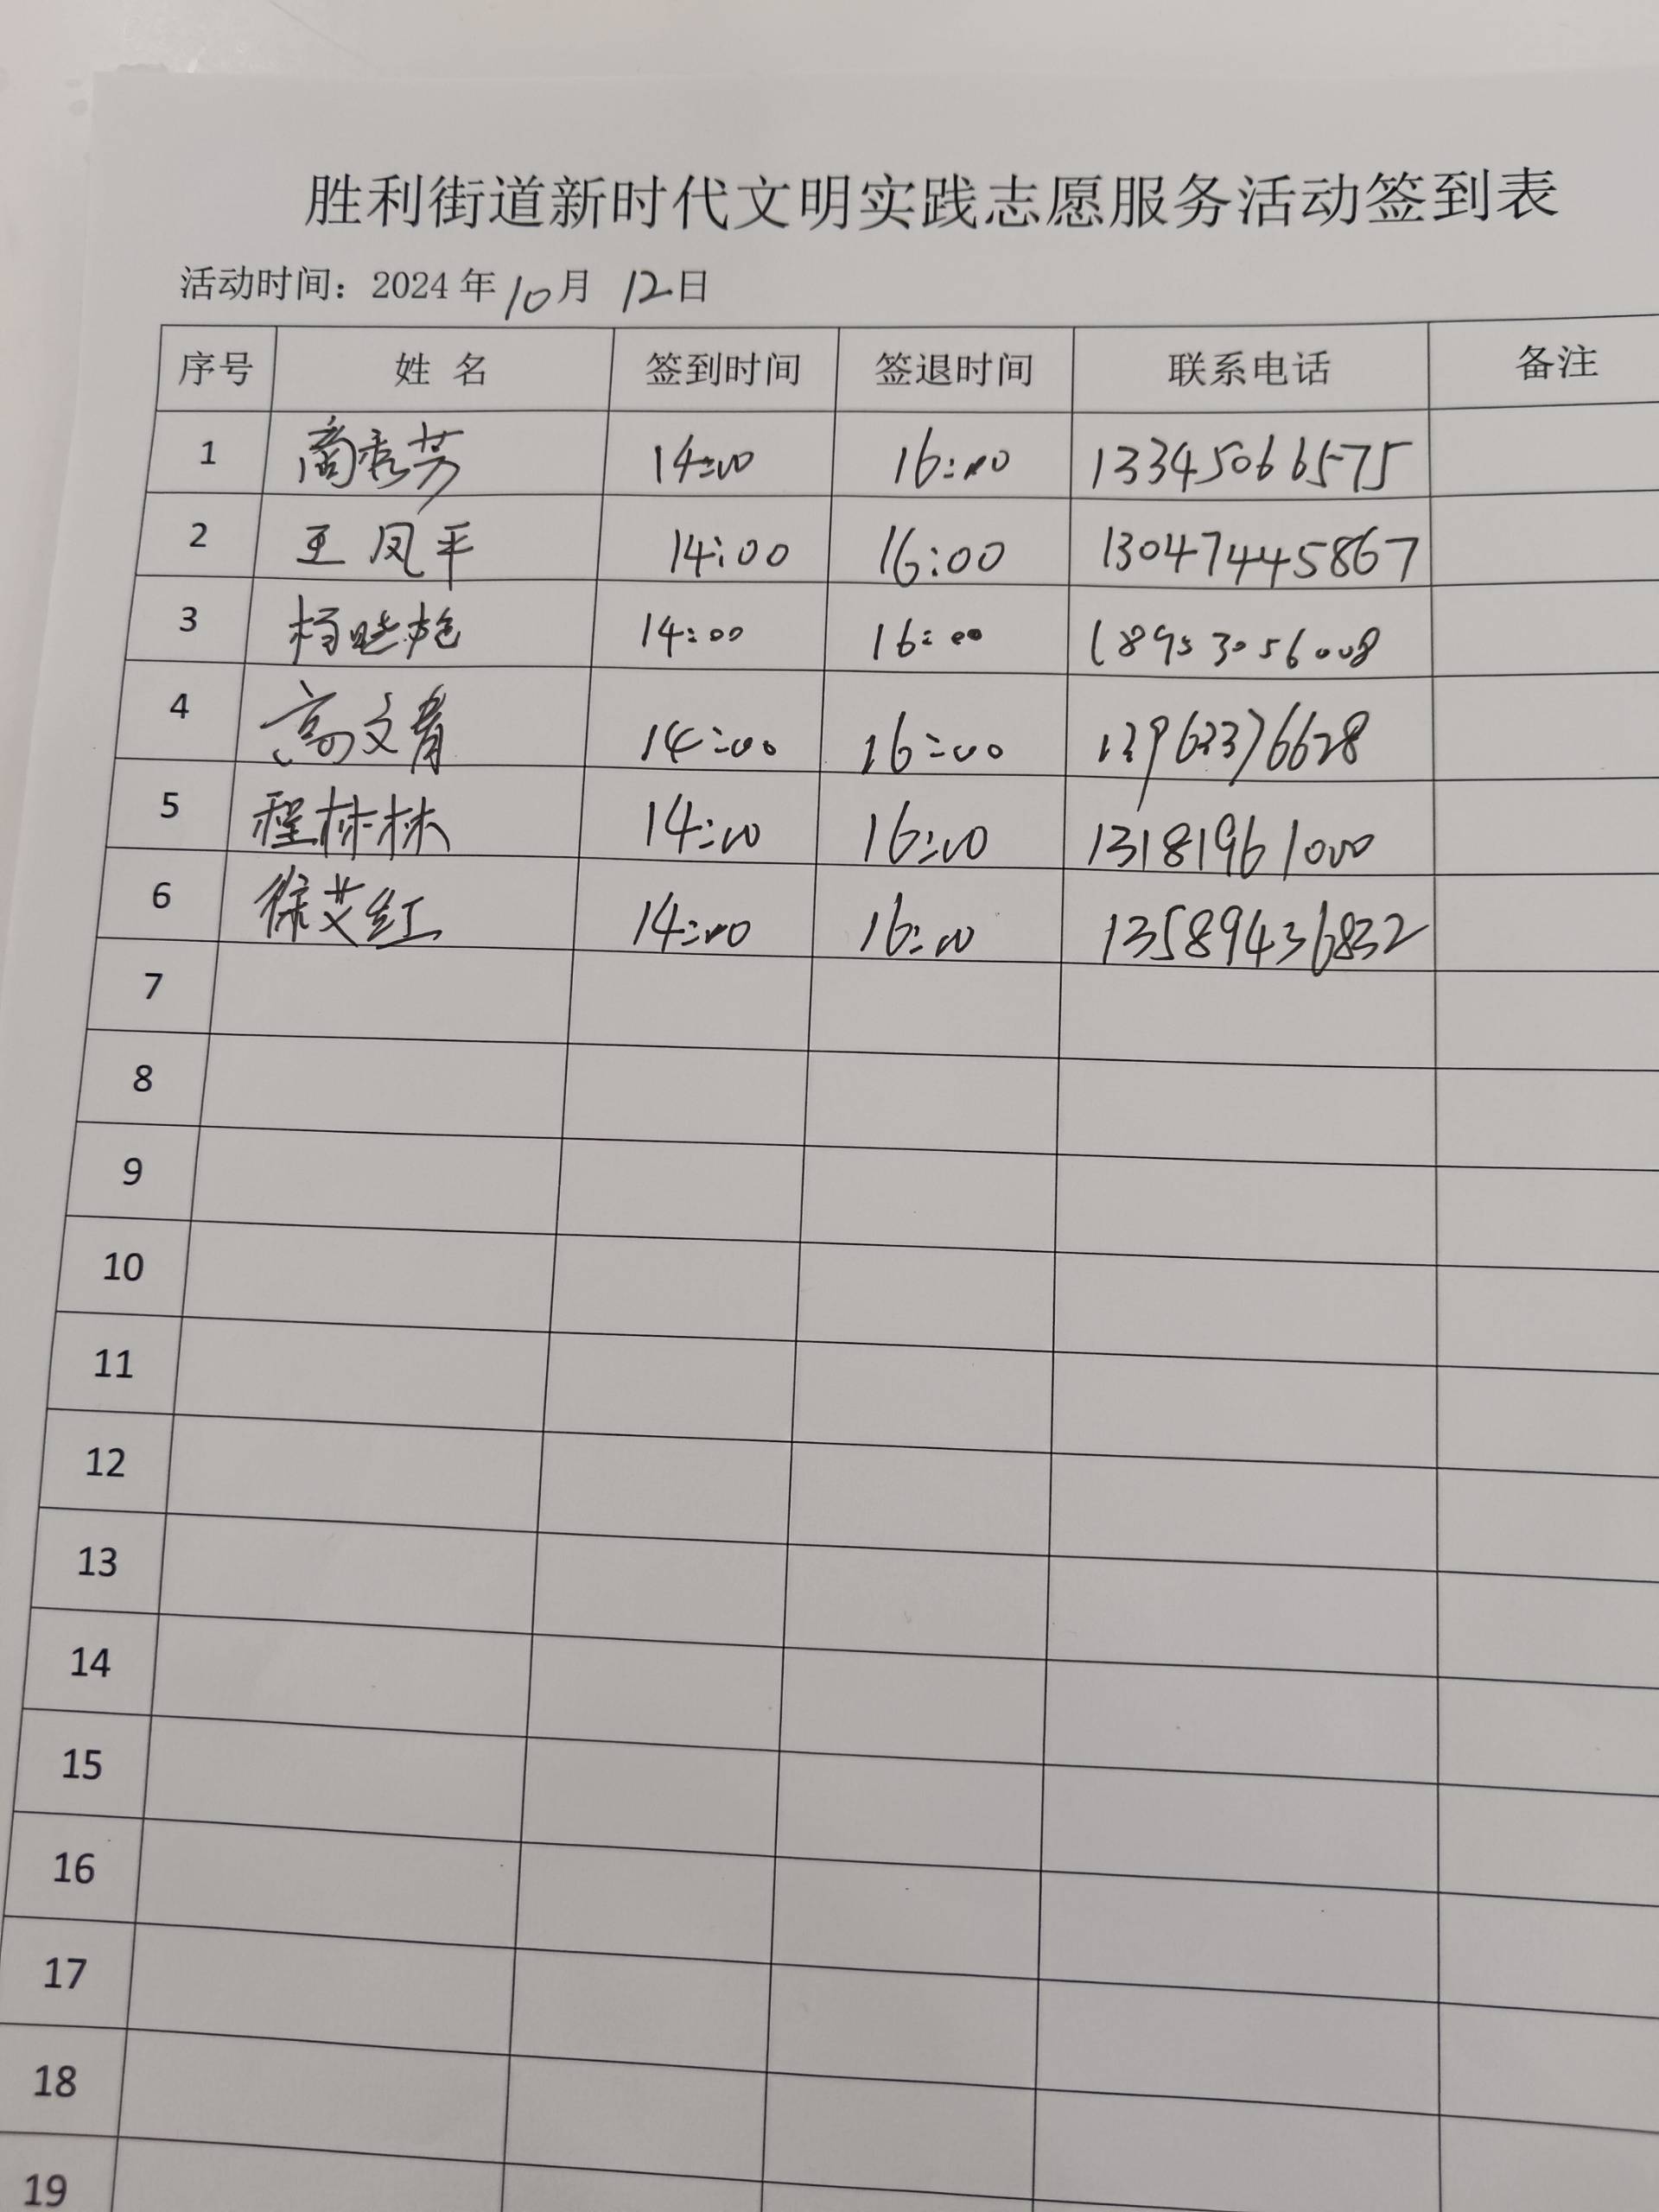 胜利街道新时代文明实践志愿服务活动签到表
活动时间：2024 年 10 月 12 日
序号 姓 名 签到时间 签退时间 联系电话 备注
1 商秀芳 14:00 16:00 13345066575
2 王凤平 14:00 16:00 13047445867
3 杨晓艳 14:00 16:00 18953056008
4 高文青 14:00 16:00
5 程林林 14:00 16:00 13181961000
6 徐艾红 14:00 16:00 13589436832
7
8
9
10
11
12
13
14
15
16
17
18
19